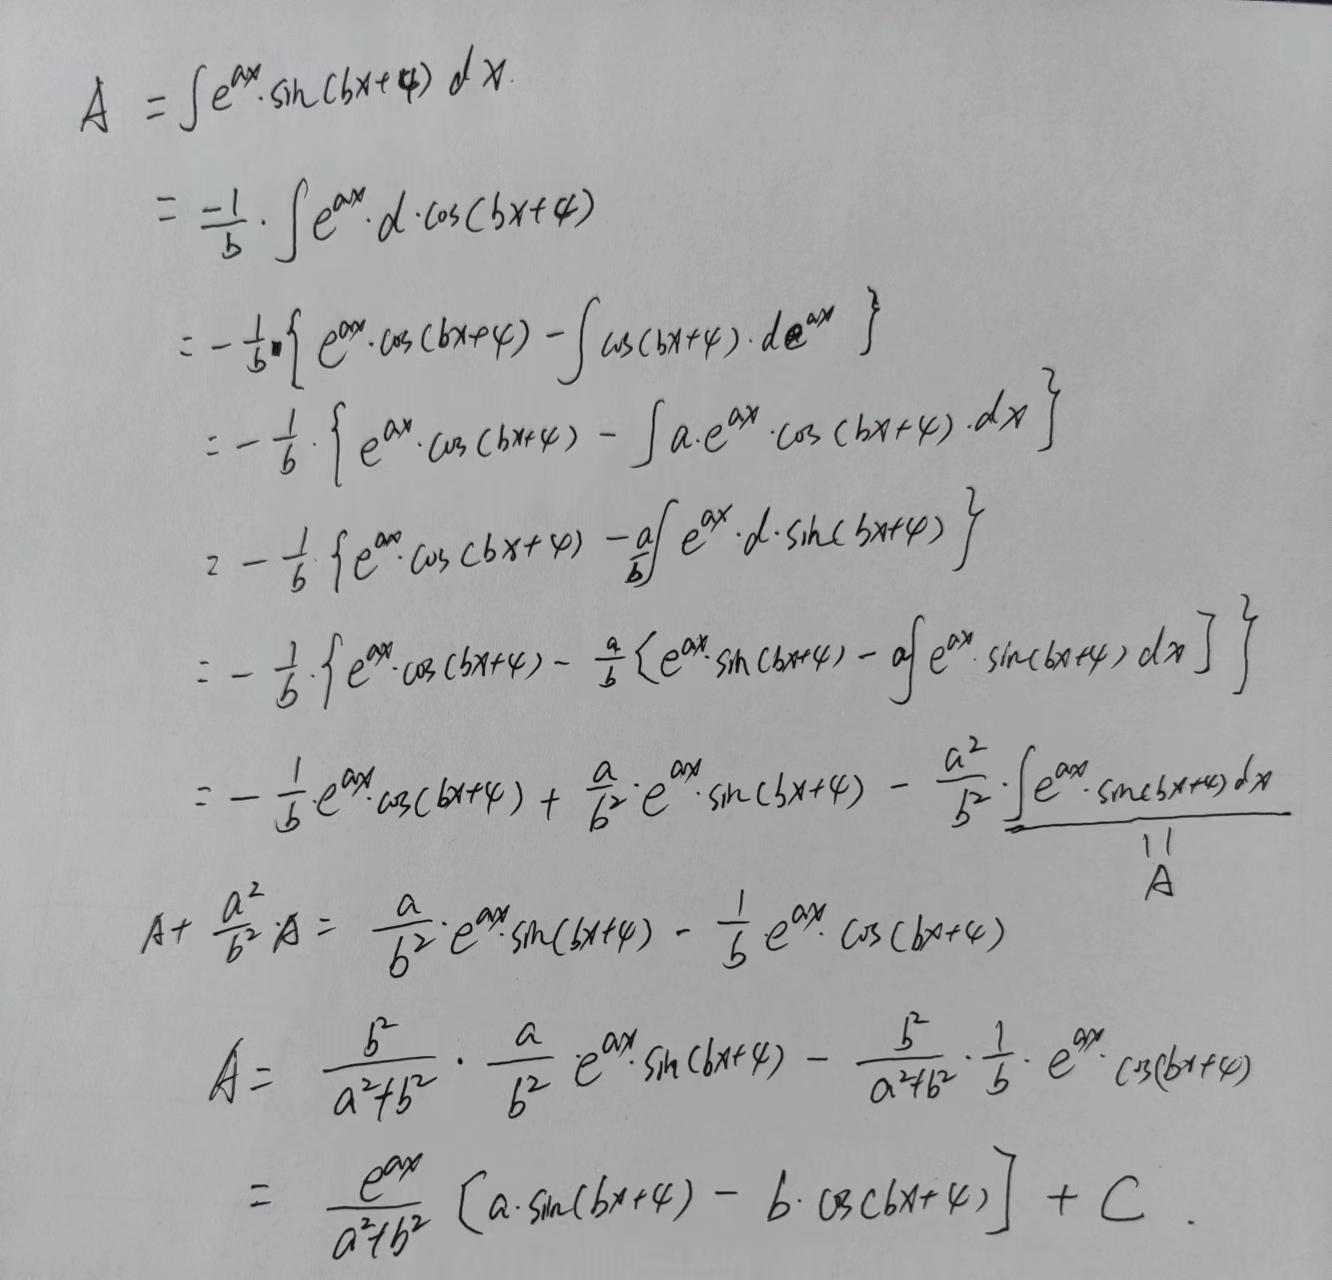 A = ∫e^{ax}·sin(bx+4) dx.
= \frac{-1}{b}·∫e^{ax}·d·cos(bx+4)
= -\frac{1}{b}·{e^{ax}·cos(bx+4) - ∫cos(bx+4)·de^{ax}}
= -\frac{1}{b}·{e^{ax}·cos(bx+4) - ∫a·e^{ax}·cos(bx+4)·dx}
= -\frac{1}{b}·{e^{ax}·cos(bx+4) - \frac{a}{b}∫e^{ax}·d·sin(bx+4)}
= -\frac{1}{b}·{e^{ax}·cos(bx+4) - \frac{a}{b}[e^{ax}·sin(bx+4) - a∫e^{ax}·sin(bx+4)dx]}
= -\frac{1}{b}·e^{ax}·cos(bx+4) + \frac{a}{b^2}·e^{ax}·sin(bx+4) - \frac{a^2}{b^2}·∫e^{ax}·sin(bx+4)dx
||
A
A + \frac{a^2}{b^2}·A = \frac{a}{b^2}·e^{ax}·sin(bx+4) - \frac{1}{b}e^{ax}·cos(bx+4)
A = \frac{b^2}{a^2+b^2}·\frac{a}{b^2}·e^{ax}·sin(bx+4) - \frac{b^2}{a^2+b^2}·\frac{1}{b}·e^{ax}·cos(bx+4)
= \frac{e^{ax}}{a^2+b^2}[a·sin(bx+4) - b·cos(bx+4)] + C.